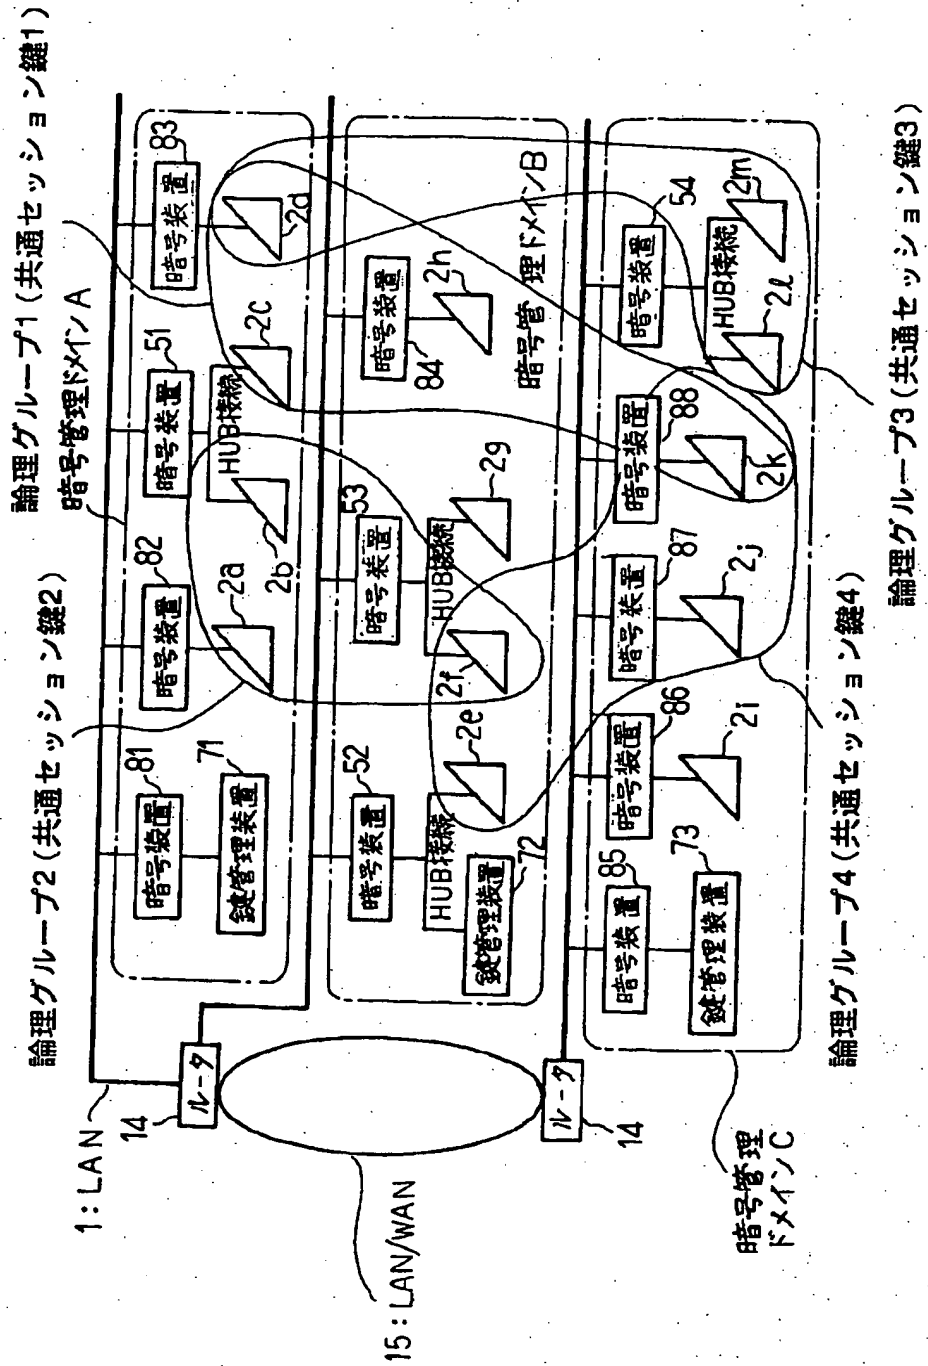 論理グループ2(共通セッション鍵2)
論理グループ1(共通セッション鍵1)
暗号管理ドメインA
1:LAN
14
ルータ
暗号装置
81
鍵管理装置
71
暗号装置
82
2a
暗号装置
51
HUB接続
2b
2c
暗号装置
83
2d
15:LAN/WAN
暗号装置
52
HUB接続
鍵管理装置
72
2e
暗号装置
53
HUB接続
2f
2g
暗号装置
84
2h
暗号管理ドメインB
ルータ
14
暗号装置
85
鍵管理装置
73
暗号装置
86
2i
暗号装置
87
2j
暗号装置
88
2k
暗号装置
54
HUB接続
2l
2m
暗号管理
ドメインC
論理グループ4(共通セッション鍵4)
論理グループ3(共通セッション鍵3)